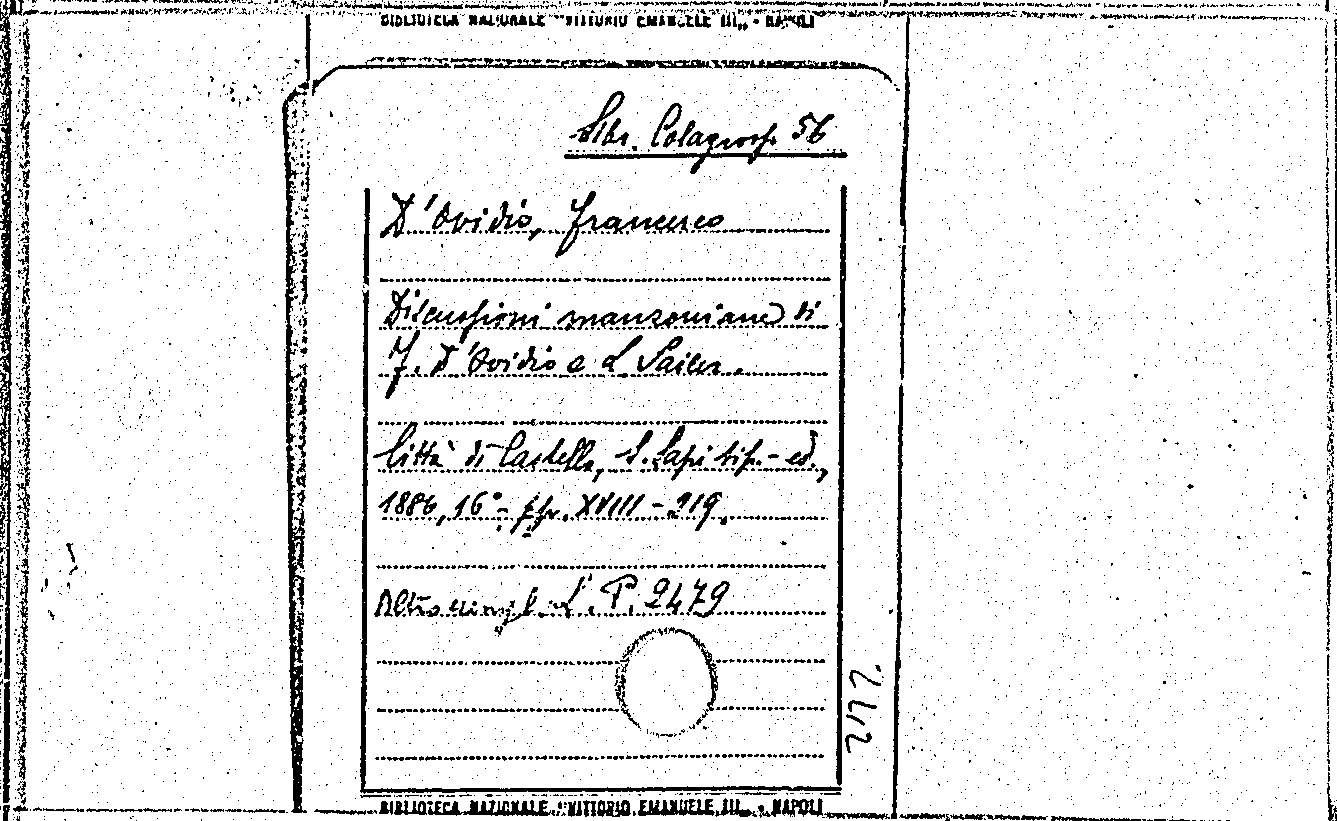 BIBLIOTECA NAZIONALE "VITTORIO EMANUELE III„ - NAPOLI
Libr. Colagross. 56
D'Ovidio, Francesco
Discussioni manzoniane di
F. D'Ovidio e L. Sailer.
Città di Castello, S. Lapi tip.-ed.,
1886, 16° - pp. XVIII - 219.
Altro esempl. L. P. 2479
BIBLIOTECA NAZIONALE "VITTORIO EMANUELE III„ - NAPOLI